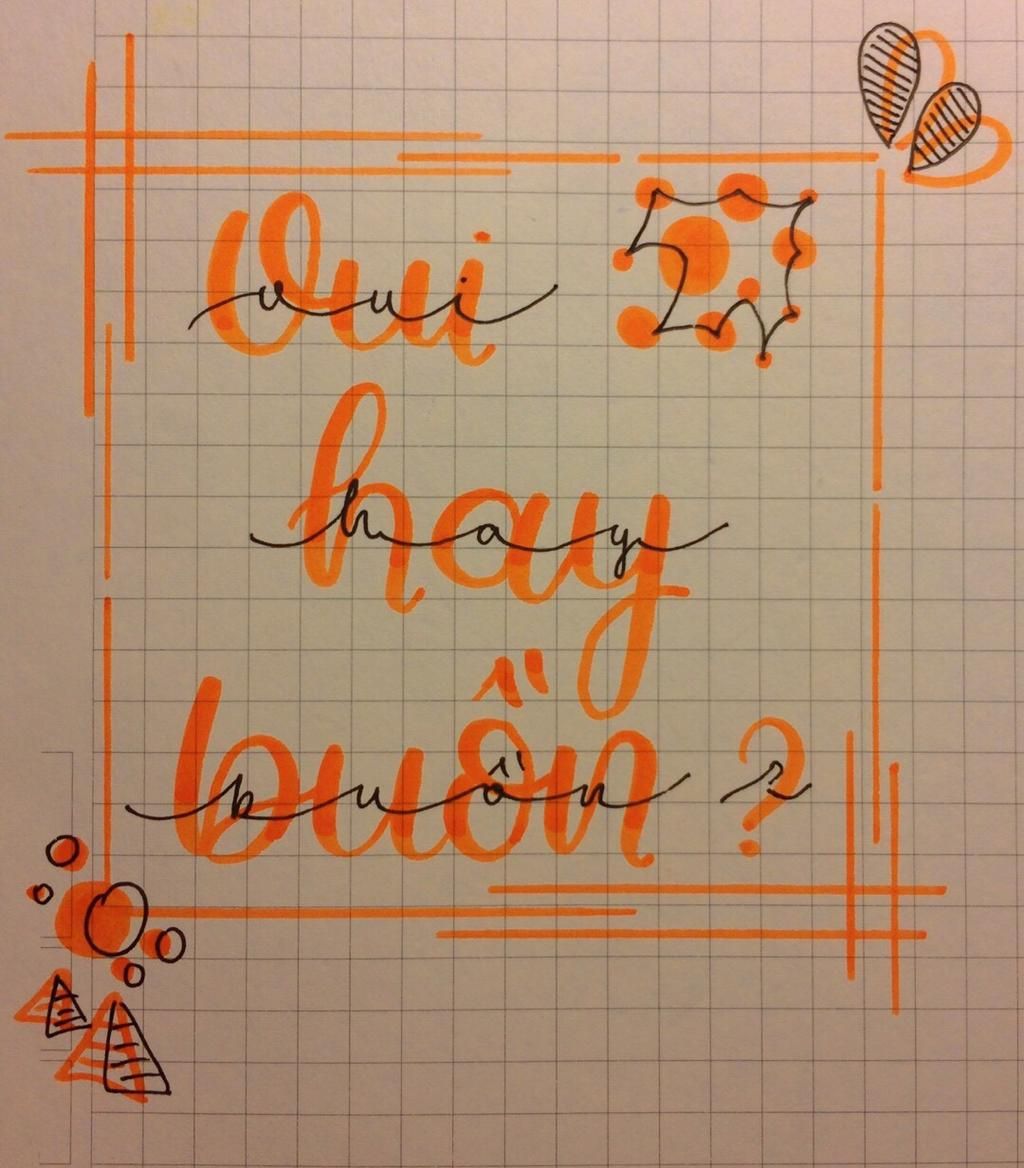 Vui
hay
buồn ?